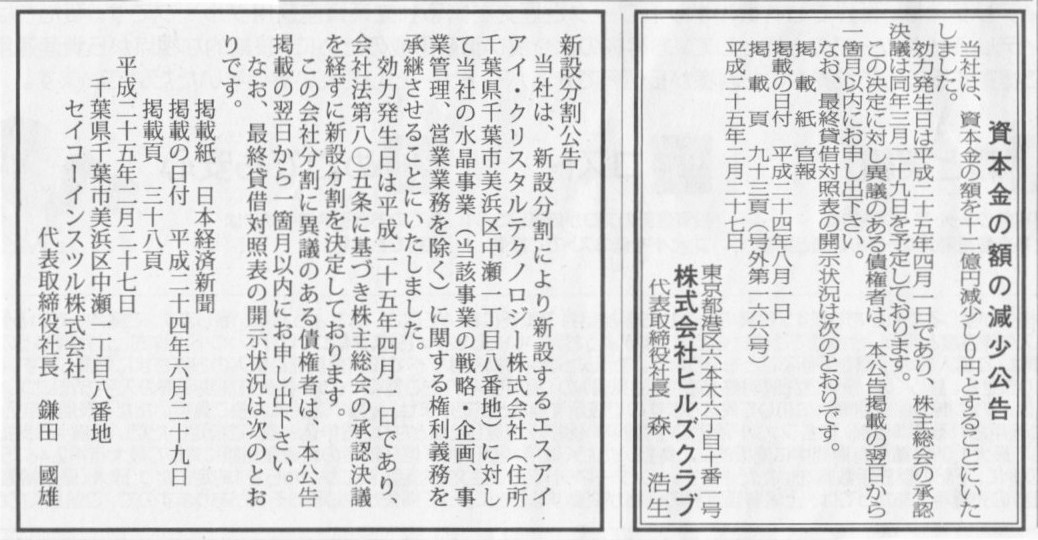 資本金の額の減少公告
当社は、資本金の額を十二億円減少し0円とすることにいた
しました。
効力発生日は平成二十五年四月一日であり、株主総会の承認
決議は同年三月二十九日を予定しております。
この決定に対し異議のある債権者は、本公告掲載の翌日から
一箇月以内にお申し出下さい。
なお、最終貸借対照表の開示状況は次のとおりです。
掲載紙 官報
掲載の日付 平成二十四年八月一日
掲載頁 九十三頁(号外第一六六号)
平成二十五年二月二十七日
東京都港区六本木六丁目十番一号
株式会社ヒルズクラブ
代表取締役社長 森 浩生
新設分割公告
当社は、新設分割により新設するエスア
アイ・クリスタルテクノロジー株式会社(住所
千葉県千葉市美浜区中瀬一丁目八番地)に対し
て当社の水晶事業(当該事業の戦略・企画、事
業管理、営業業務を除く)に関する権利義務を
承継させることにいたしました。
効力発生日は平成二十五年四月一日であり
会社法第八〇五条に基づき株主総会の承認決議
を経ずに新設分割を決定しております。
この会社分割に異議のある債権者は、本公告
掲載の翌日から一箇月以内にお申し出下さい。
なお、最終貸借対照表の開示状況は次のとお
りです。
掲載紙 日本経済新聞
掲載の日付 平成二十四年六月二十九日
掲載頁 三十八頁
平成二十五年二月二十七日
千葉県千葉市美浜区中瀬一丁目八番地
セイコーインスツル株式会社
代表取締役社長 鎌田 國雄